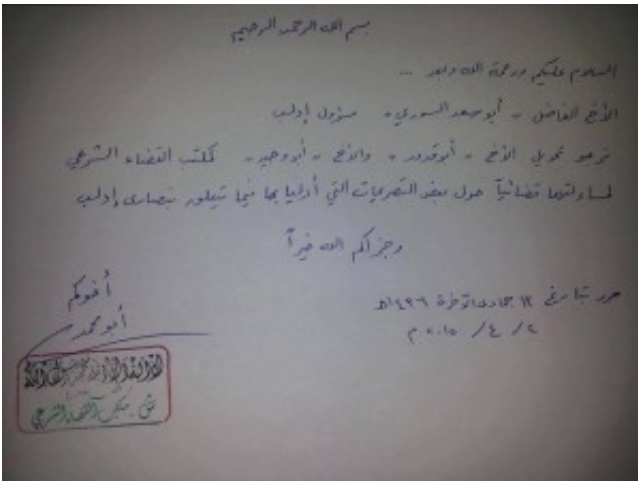 بسم الله الرحمن الرحيم
السلام عليكم ورحمة الله وبعد ...
الأخ الفاضل - أبو سعد السوري - مسؤول إدلب
نرجو تحويل الأخ - أبو قدور - والأخ - أبو وحيد - لمكتب القضاء الشرعي
لمساءلتهما قضائياً حول بعض التصريحات التي أدليا بها فيما يتعلق بنصارى إدلب
وجزاكم الله خيراً
حرر بتاريخ ١٢ جمادى الآخرة ١٤٣٦هـ
٢ / ٤ / ٢٠١٥ م
أخوكم
أبو محمد
مكتب القضاء الشرعي